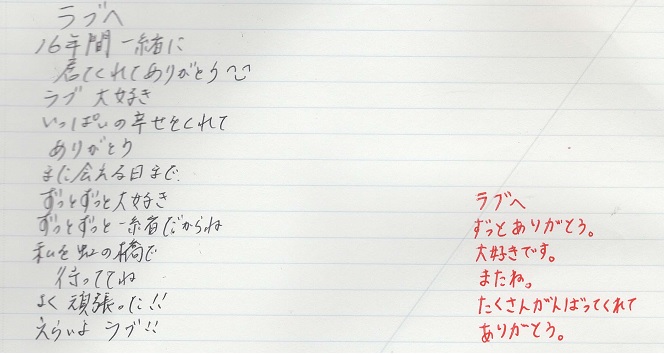 ラブへ
16年間 一緒に
居てくれてありがとう
ラブ 大好き
いっぱいの幸せをくれて
ありがとう
また会える日まで
ずっとずっと大好き
ずっとずっと一緒だからね
私を虹の橋で
待っててね
よく頑張った!!
えらいよ ラブ!!
ラブへ
ずっとありがとう。
大好きです。
またね。
たくさんがんばってくれて
ありがとう。